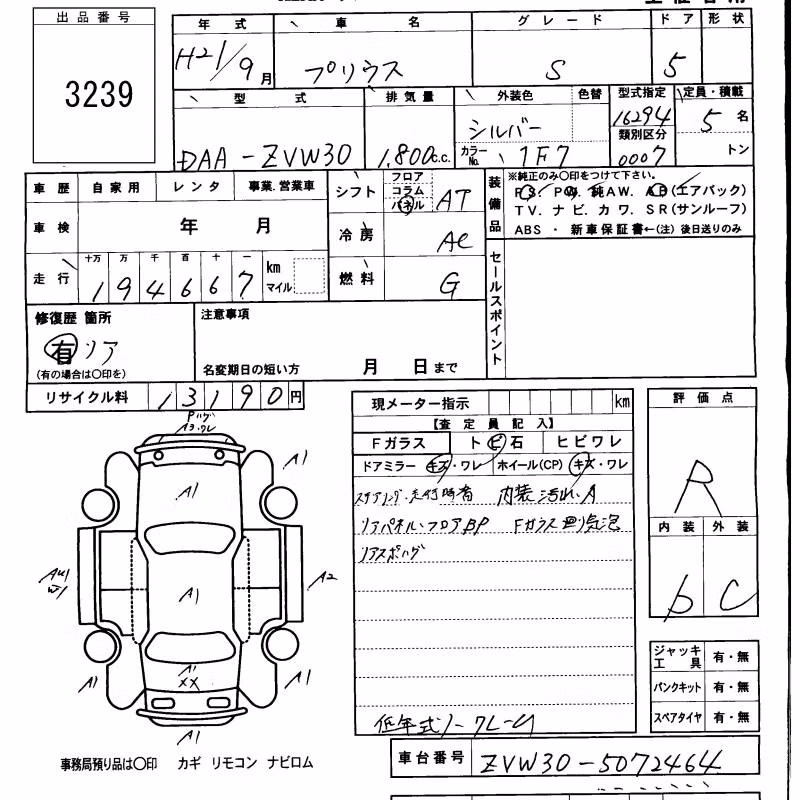 出品番号
3239
年式 車名 グレード ドア 形状
H21/9月 プリウス S 5
型式 排気量 外装色 色替 型式指定 定員・積載
DAA-ZVW30 1,800c.c. シルバー 16294 5名
カラーNo. 1F7 類別区分 0007 トン
車歴 自家用 レンタ 事業.営業車
シフト フロア コラム パネル AT
装備品
※純正のみ〇印をつけて下さい。
PS. PW. 純AW. AB(エアバック)
TV. ナビ. カワ. SR(サンルーフ)
ABS ・ 新車保証書←(注) 後日送りのみ
車検 年 月
冷房 AC
走行 十万 万 千 百 十 一
194667 km マイル
燃料 G
セールスポイント
修復歴 箇所
有 リア
(有の場合は〇印を)
注意事項
名変期日の短い方 月 日まで
リサイクル料 13190円
現メーター指示 km
【査定員記入】
Fガラス トビ石 ヒビワレ
ドアミラー キズ・ワレ ホイール(CP) キズ・ワレ
内装汚れ.A
リアパネル・フロアBP
評価点
R
内装 外装
b C
A1
A1
A1
A1
A2
A1
XX
A1
A1
A1
ジャッキ工具 有・無
パンクキット 有・無
スペアタイヤ 有・無
低年式ノークレーム
事務局預り品は〇印 カギ リモコン ナビロム
車台番号 ZVW30-5072464